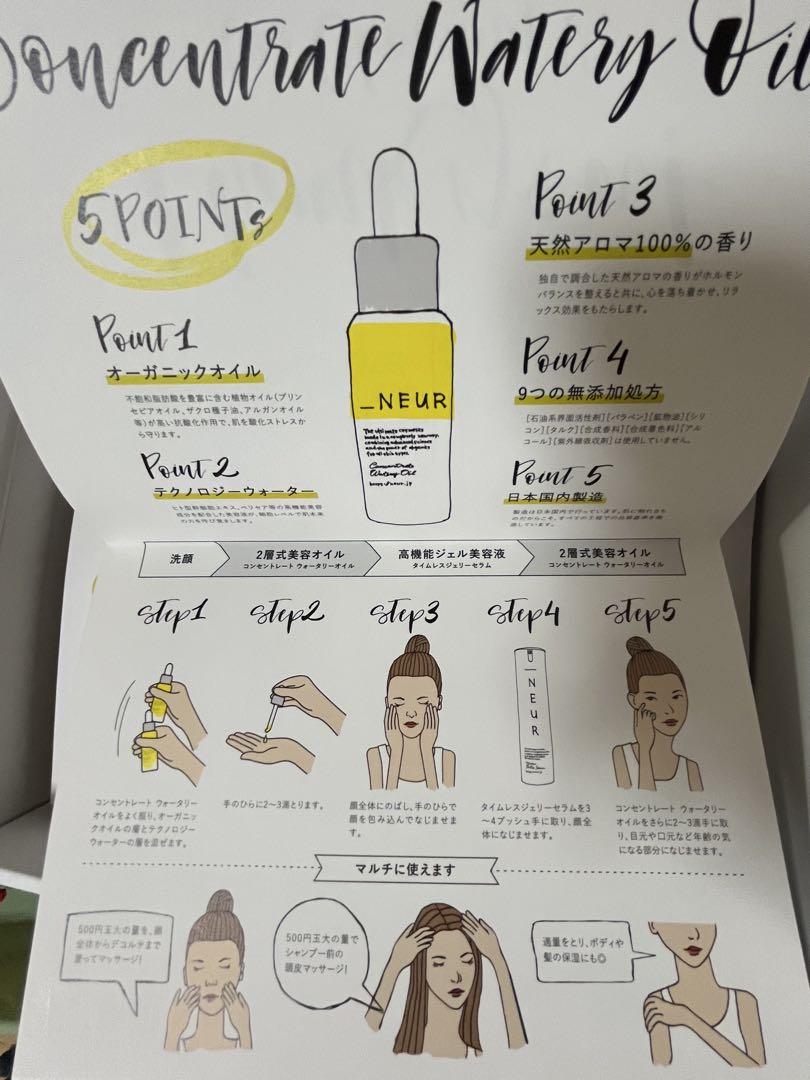 Concentrate Watery Oil
5 POINTs
Point 1
オーガニックオイル
不飽和脂肪酸を豊富に含む植物オイル(プリン
セピアオイル、ザクロ種子油、アルガンオイル
等)が高い抗酸化作用で、肌を酸化ストレスか
ら守ります。
Point 2
テクノロジーウォーター
ヒト型幹細胞エキス、ペリセア等の高機能美容
成分を配合した美容液が、細胞レベルで肌本来
の力を呼び覚まします。
_NEUR
The ultimate cosmetics
made in a completely new way,
combining advanced science
and the power of organics
for all skin types.
Concentrate
Watery Oil
https://neur.jp
Point 3
天然アロマ100%の香り
独自で調合した天然アロマの香りがホルモン
バランスを整えると共に、心を落ち着かせ、リラ
ックス効果をもたらします。
Point 4
9つの無添加処方
[石油系界面活性剤][パラベン][鉱物油][シリ
コン][タルク][合成香料][合成着色料][アル
コール][紫外線吸収剤]は使用していません。
Point 5
日本国内製造
製造は日本国内で行っています。肌に触れるも
のだからこそ、すべての工程での品質基準を徹
底しています。
洗顔
2層式美容オイル
コンセントレート ウォータリーオイル
高機能ジェル美容液
タイムレスジェリーセラム
2層式美容オイル
コンセントレート ウォータリーオイル
Step1
Step2
Step3
Step4
Step5
_NEUR
コンセントレート ウォータリー
オイルをよく振り、オーガニッ
クオイルの層とテクノロジー
ウォーターの層を混ぜます。
手のひらに2〜3滴とります。
顔全体にのばし、手のひらで
顔を包み込んでなじませま
す。
タイムレスジェリーセラムを3
〜4プッシュ手に取り、顔全
体になじませます。
コンセントレート ウォータリー
オイルをさらに2〜3滴手に取
り、目元や口元など年齢の気
になる部分になじませます。
マルチに使えます
500円玉大の量を、顔
全体からデコルテまで
塗ってマッサージ!
500円玉大の量で
シャンプー前の
頭皮マッサージ!
適量をとり、ボディや
髪の保湿にも◎